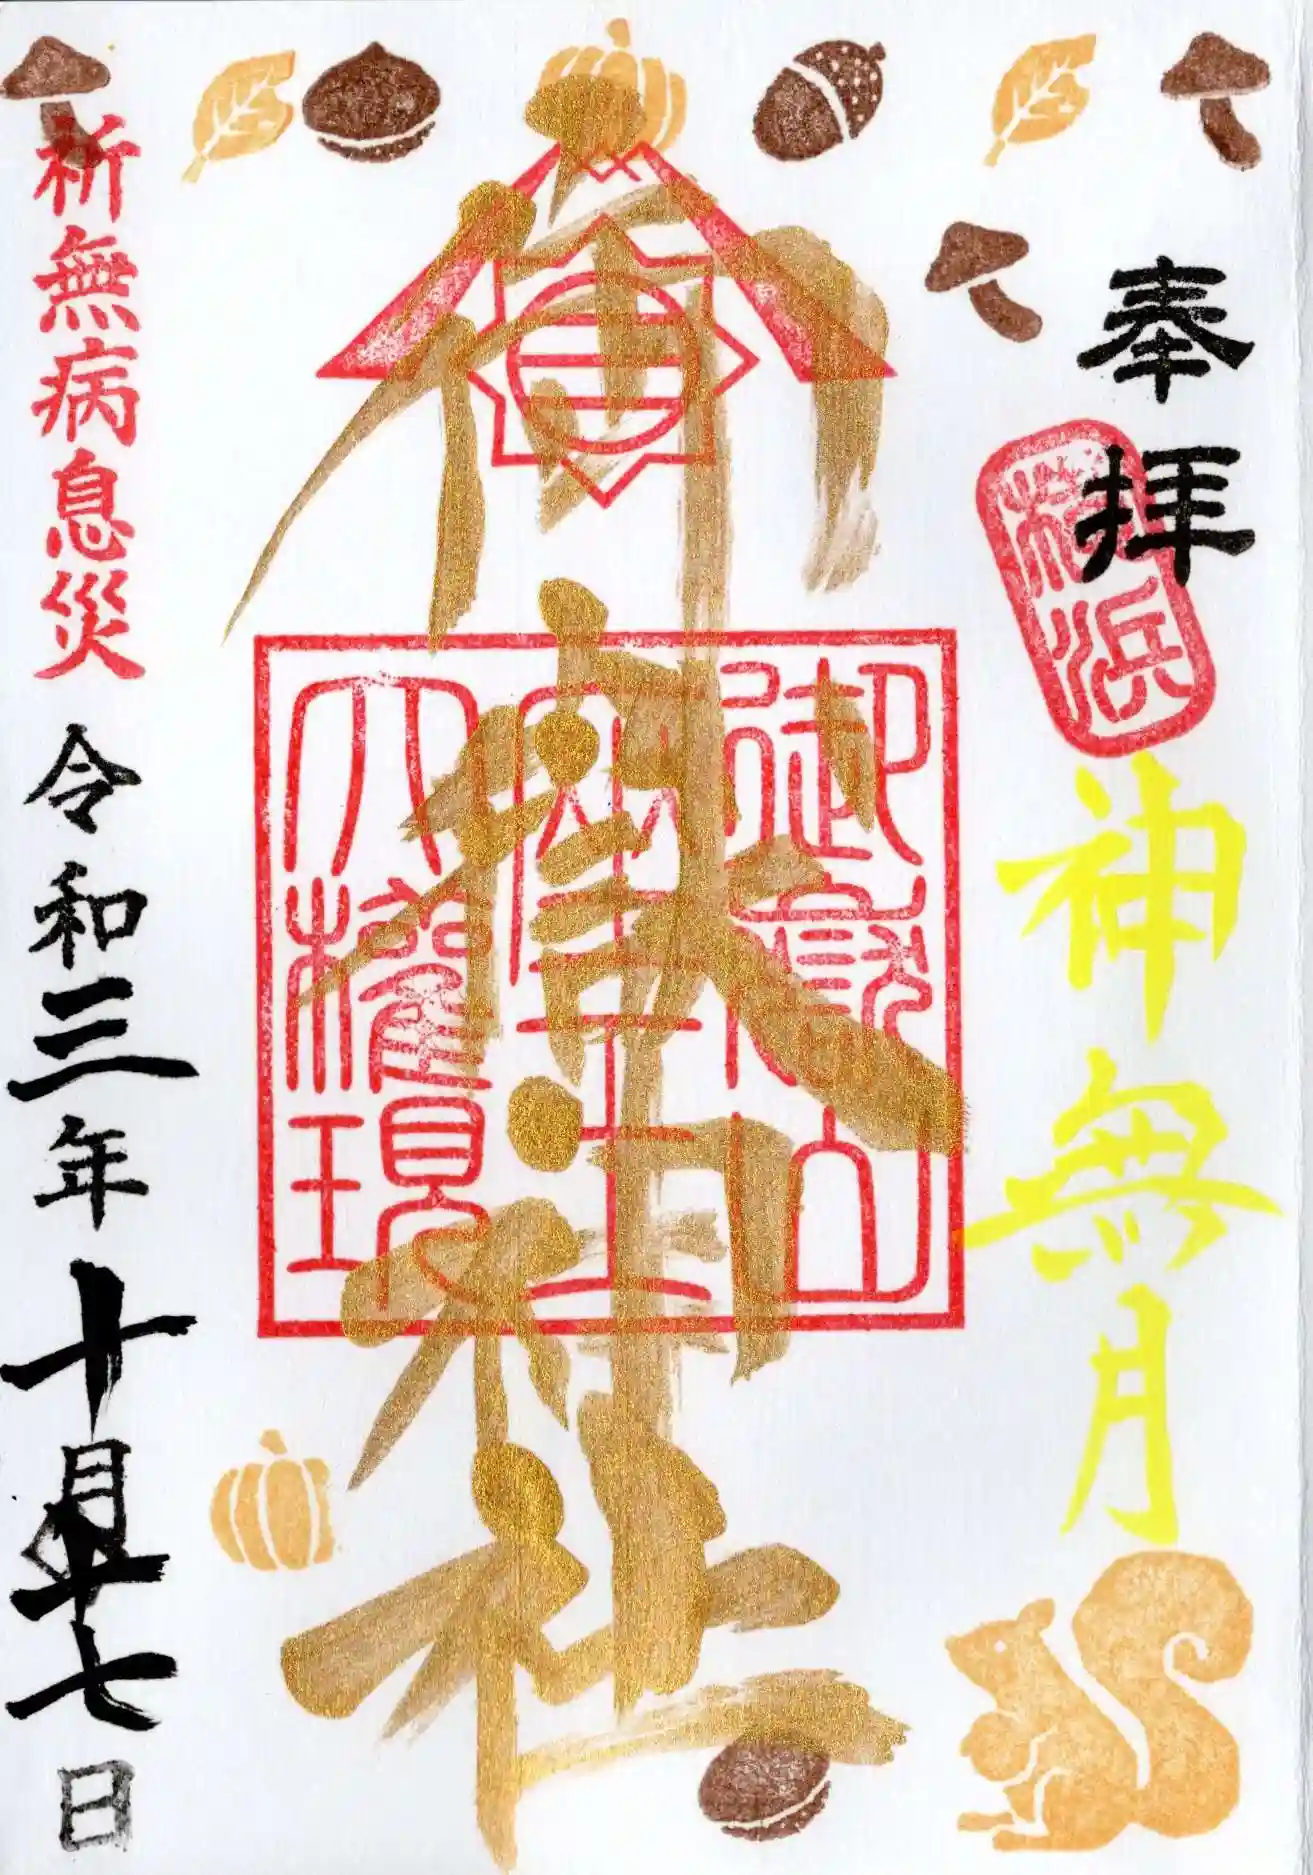 奉拝
浜
神無月
御嶽神社
御嶽山
權現
祈無病息災
令和三年十月十七日